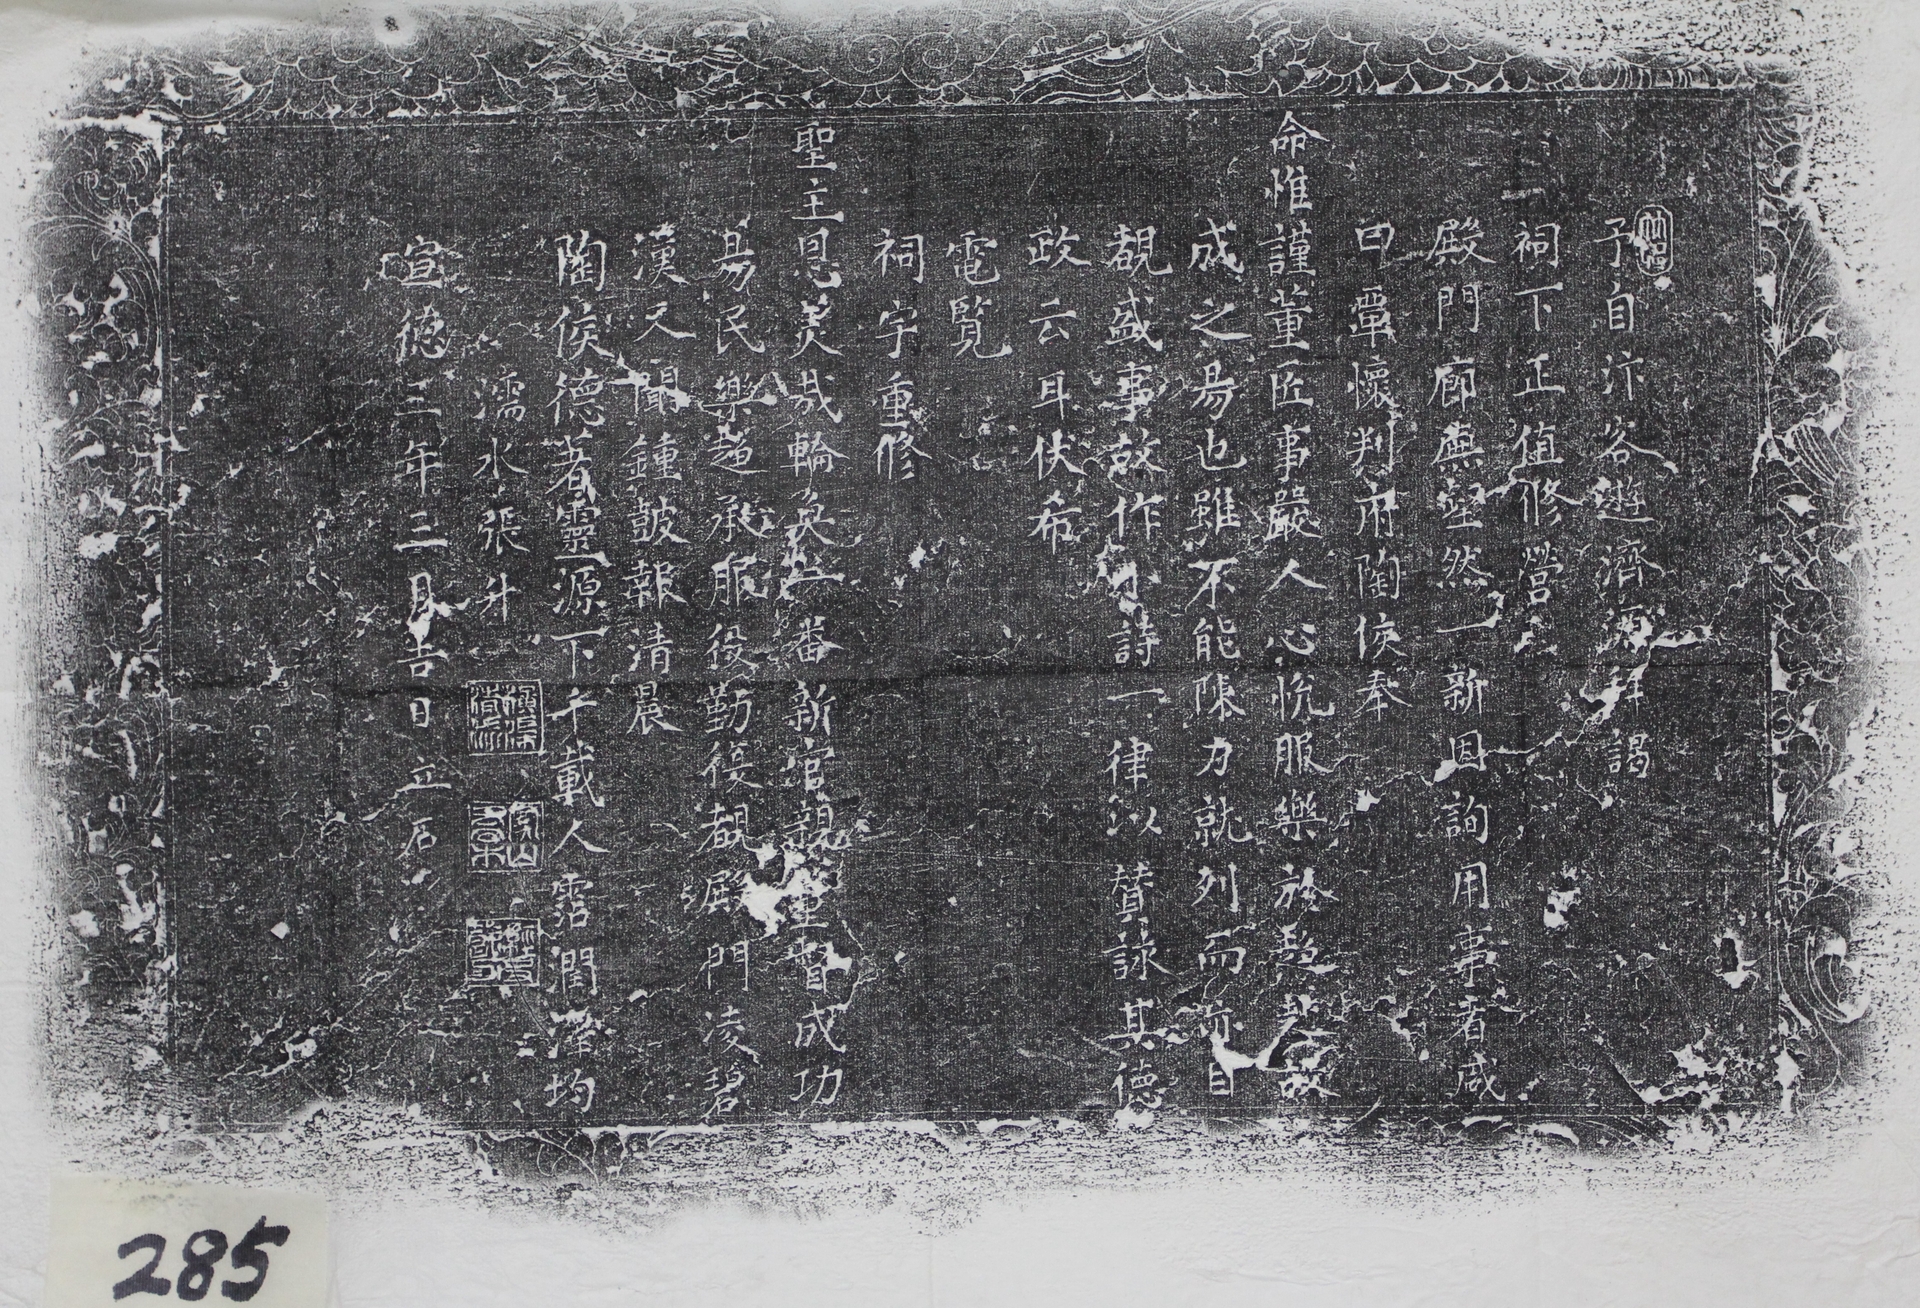 予自汴客遊濟源拜謁
祠下正值修營
殿門廊廡堅然一新因詢用事者咸
曰覃懷判府陶侯奉
命惟謹董匠事嚴人心悅服樂於趨赴故
成之易也雖不能陳力就列而亦目
覩盛事故作小詩一律以贊詠其德
政云耳伏希
電覽
祠宇重修
聖主恩美哉輪奐一番新官親董督成功
易民樂趨承服役勤後覩殿門凌碧
漢又聞鍾鼓報清晨
陶侯德著靈源下千載人霑潤澤均
濡水張升
宣德三年三月吉日立石
285